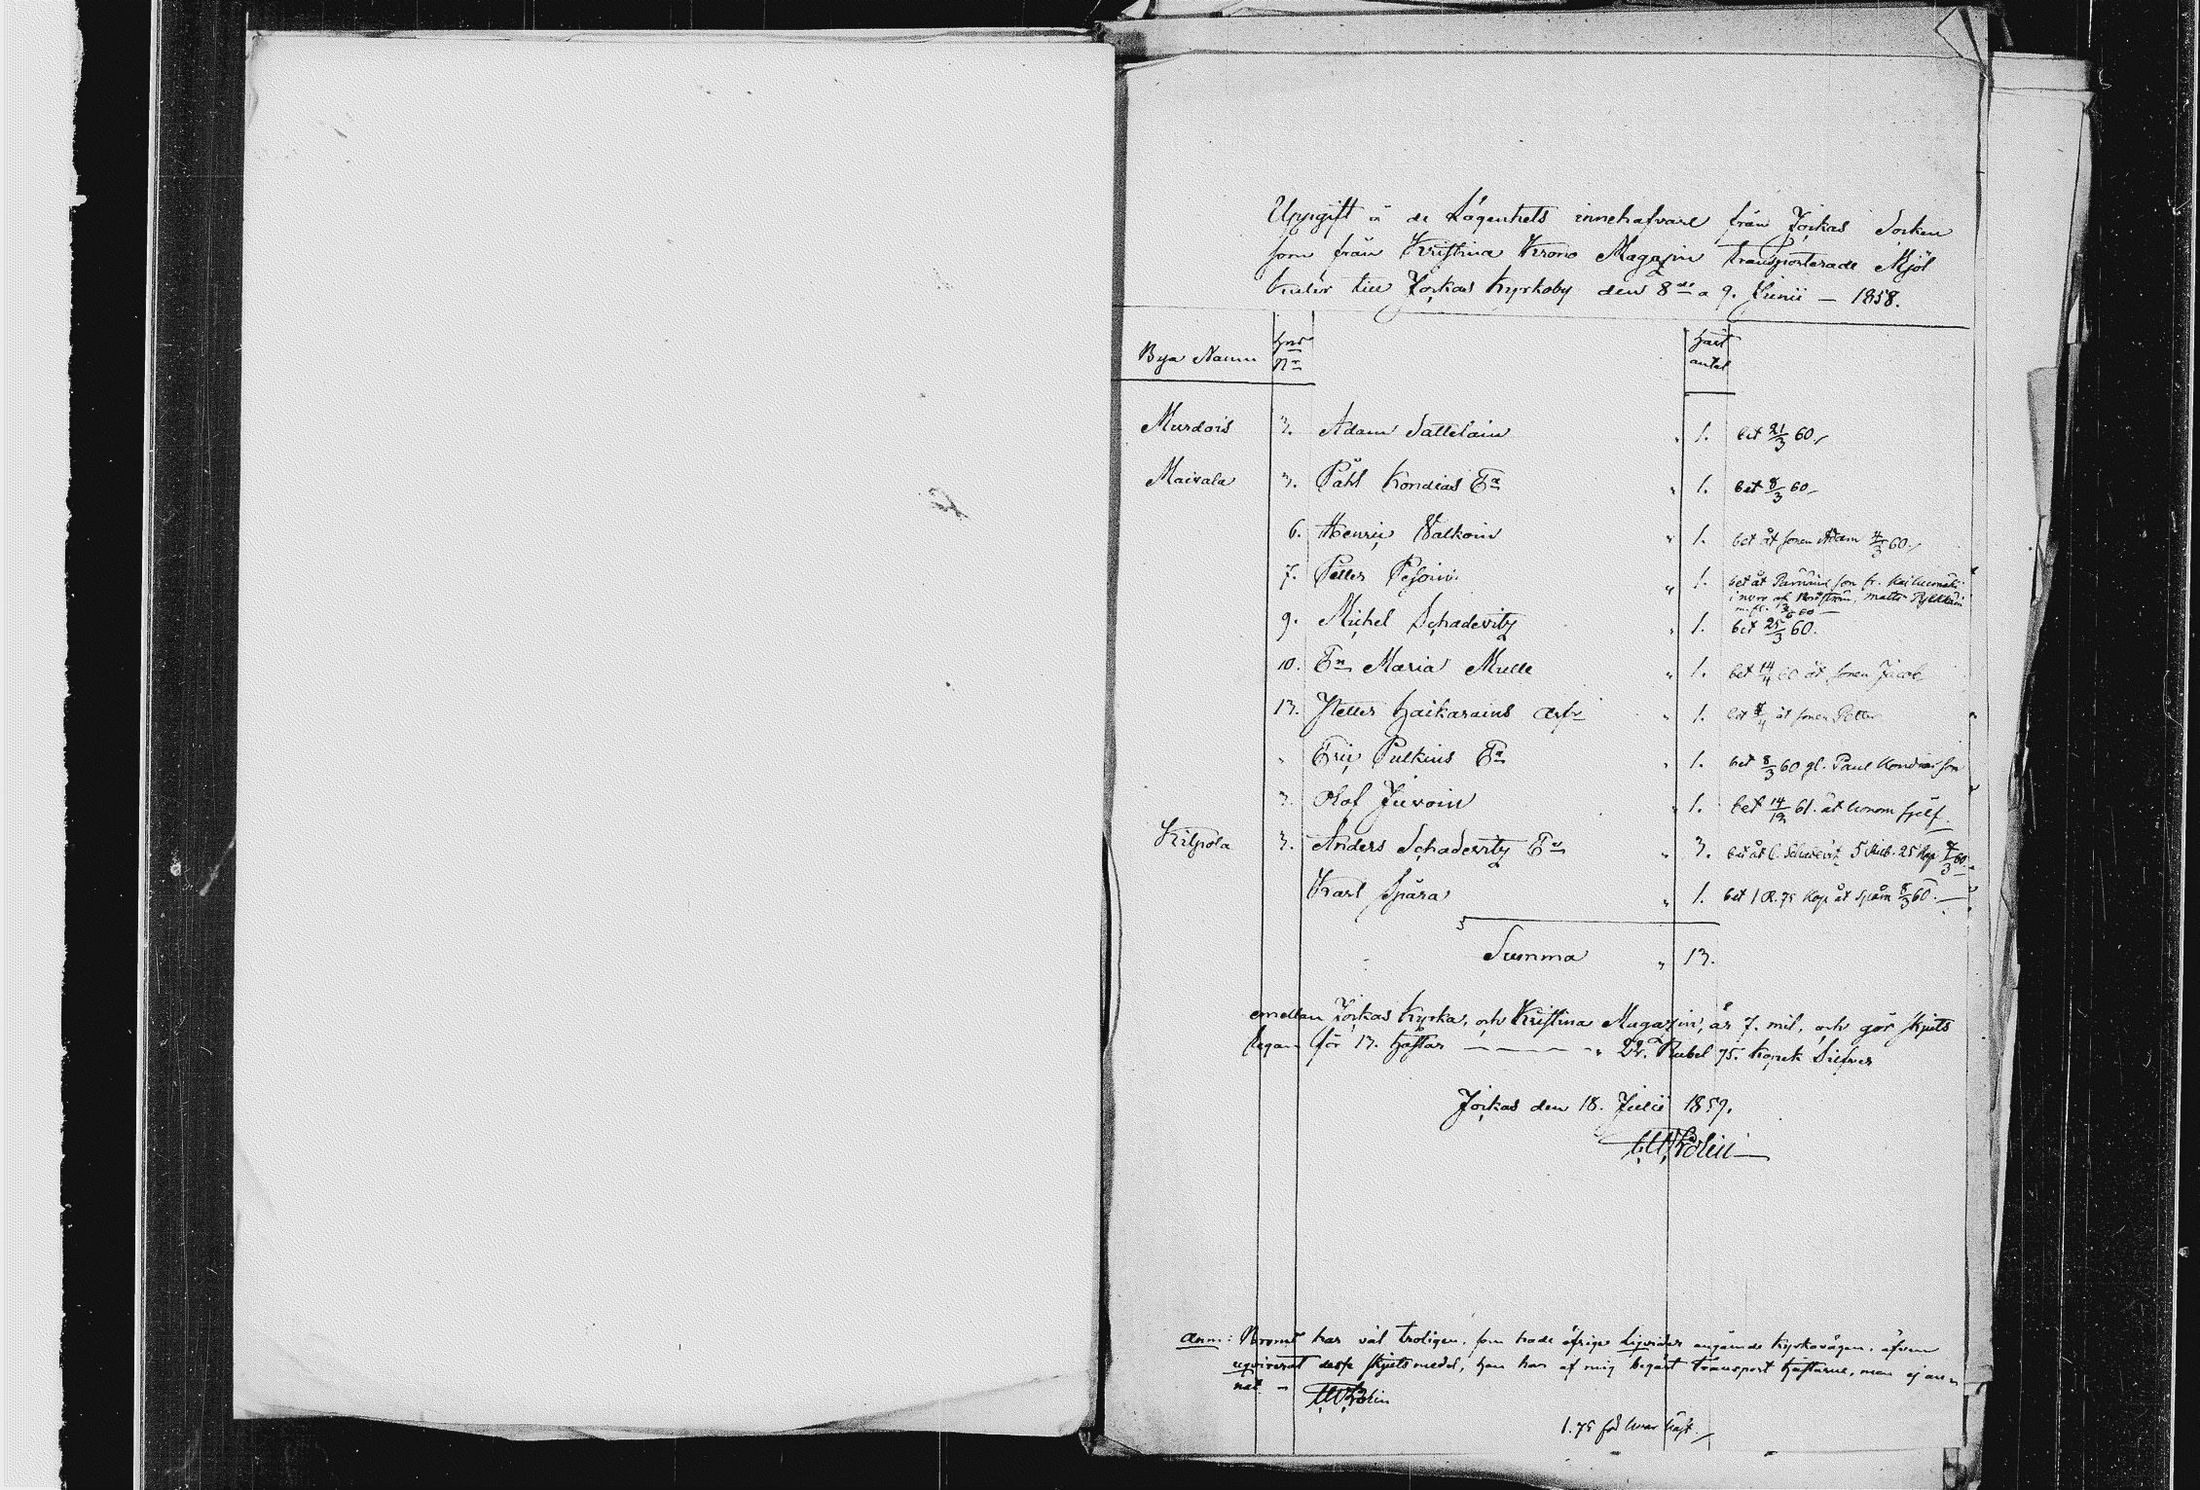 Uppgift å de Lägenhets innehafvare från Jockas Socken
som från Kristina Krono Magazin transporterade Mjöl
hittår till Jockas Kyrkoby den 8de a 9. Junii — 1858.
Bya Namn Hms No Häst antal
Murdois 3. Adam Sattelain " 1. bet 21/3 60
Maivala 3. Påhl Kondias Ea " 1. bet 8/3 60
6. Henric Walkoin " 1. bet åt sonen Adam 4/3 60.
7. Petter Pesoin " 1. bet åt son fr.
m. fl. 60
9. Michel Schadevitz " 1. bet 25/3 60.
10. En Maria Mulle " 1. bet 14/4 60 åt sonen Jacob
13. Petter Haikarains Arfv " 1. bet åt sonen Petter
" Eric Pulkins Ea " 1. bet 8/3 60 gl. Paul Kondias son
3. Olof Juvoin " 1. bet 14/12 61. åt honom sjelf.
Kilpola 3. Anders Schadevitz En " 3. bet åt C. Schadevit 5 Rub. 25 Kop 60
Karl Spåra " 1. bet 1 R. 75 Kop åt Spåra 8/3 60.
Summa " 13.
emellan Jockas Kyrka, och Kristina Magazin, är 7. mil, och gör skjuts
legan för 13. hästar " 22. Rubel 75. kopek Silfver
Jockas den 18. Julii 1859.
Anm: har väl troligen, som hade öfrige liqvider angående Kyrkovägen, äfven
reqvirerat desse skjutsmedel, han har af mig begärt transport hästarne, men ej an-
nat —
1.75 för hvar häst.